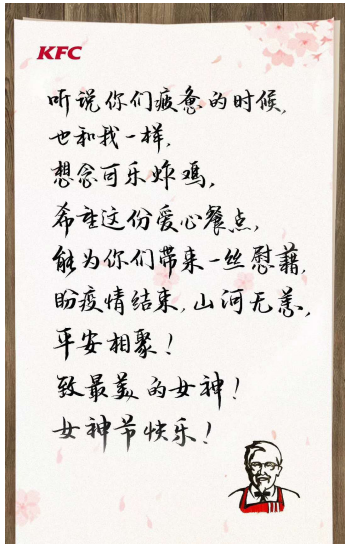 KFC
听说你们疲惫的时候,
也和我一样,
想念可乐炸鸡,
希望这份爱心餐点,
能为你们带来一丝慰藉,
盼疫情结束,山河无恙,
平安相聚!
致最美的女神!
女神节快乐!